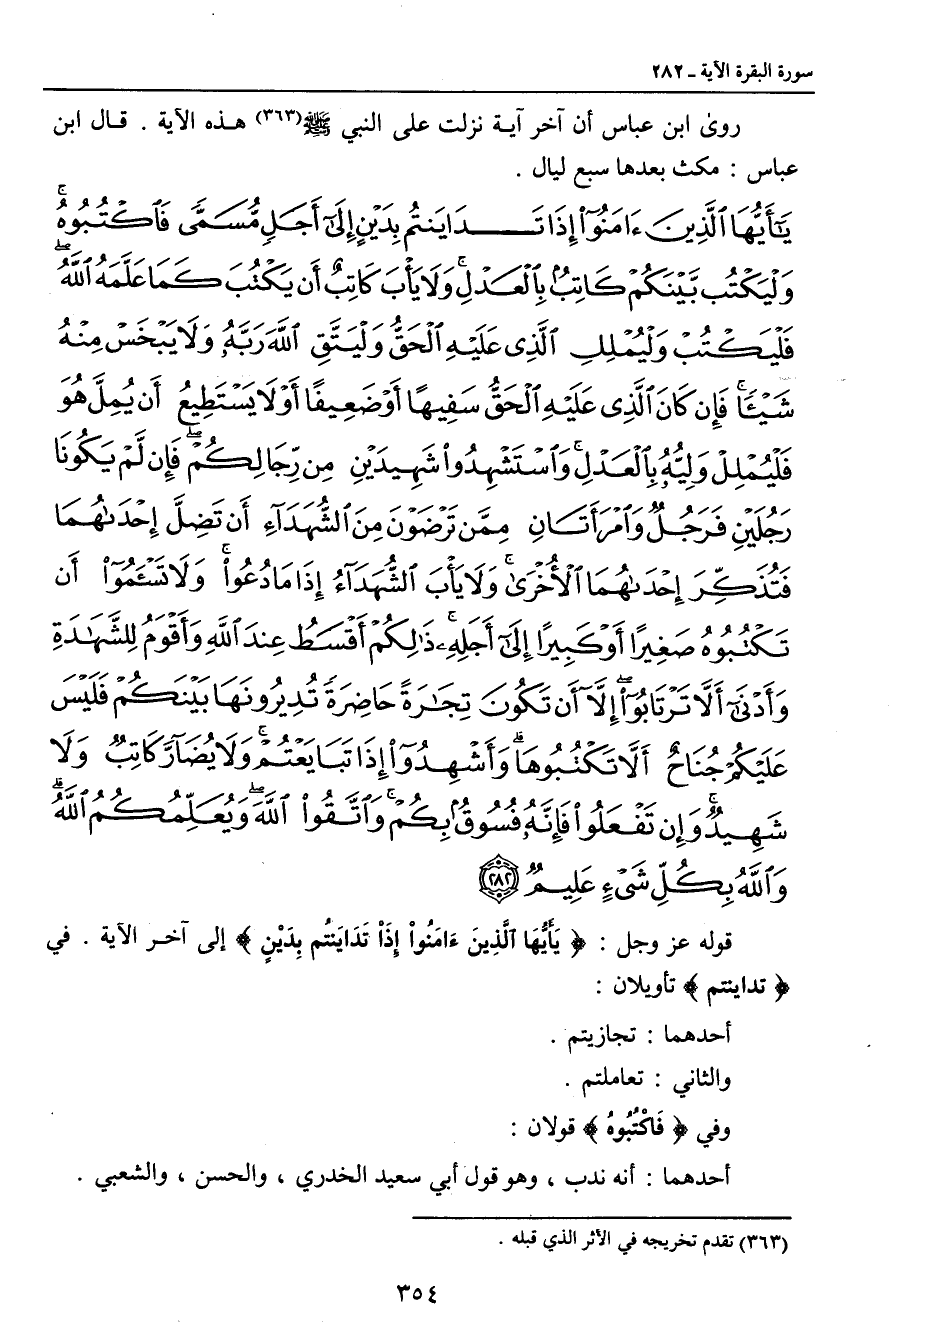 سورة البقرة الآية ــ ٢٨٢
روىٰ ابن عباس أن آخر آية نزلت على النبي ﷺ(٣٦٣) هذه الآية . قال ابن
عباس : مكث بعدها سبع ليال .
يَٰٓأَيُّهَا ٱلَّذِينَ ءَامَنُوٓاْ إِذَا تَدَايَنتُم بِدَيْنٍ إِلَىٰٓ أَجَلٍ مُّسَمًّى فَٱكْتُبُوهُۚ
وَلْيَكْتُب بَّيْنَكُمْ كَاتِبٌۢ بِٱلْعَدْلِۚ وَلَا يَأْبَ كَاتِبٌ أَن يَكْتُبَ كَمَا عَلَّمَهُ ٱللَّهُۚ
فَلْيَكْتُبْ وَلْيُمْلِلِ ٱلَّذِى عَلَيْهِ ٱلْحَقُّ وَلْيَتَّقِ ٱللَّهَ رَبَّهُۥ وَلَا يَبْخَسْ مِنْهُ
شَيْـًٔاۚ فَإِن كَانَ ٱلَّذِى عَلَيْهِ ٱلْحَقُّ سَفِيهًا أَوْ ضَعِيفًا أَوْ لَا يَسْتَطِيعُ أَن يُمِلَّ هُوَ
فَلْيُمْلِلْ وَلِيُّهُۥ بِٱلْعَدْلِۚ وَٱسْتَشْهِدُواْ شَهِيدَيْنِ مِن رِّجَالِكُمْۖ فَإِن لَّمْ يَكُونَا
رَجُلَيْنِ فَرَجُلٌ وَٱمْرَأَتَانِ مِمَّن تَرْضَوْنَ مِنَ ٱلشُّهَدَآءِ أَن تَضِلَّ إِحْدَىٰهُمَا
فَتُذَكِّرَ إِحْدَىٰهُمَا ٱلْأُخْرَىٰۚ وَلَا يَأْبَ ٱلشُّهَدَآءُ إِذَا مَا دُعُواْۚ وَلَا تَسْـَٔمُوٓاْ أَن
تَكْتُبُوهُ صَغِيرًا أَوْ كَبِيرًا إِلَىٰٓ أَجَلِهِۦۚ ذَٰلِكُمْ أَقْسَطُ عِندَ ٱللَّهِ وَأَقْوَمُ لِلشَّهَٰدَةِ
وَأَدْنَىٰٓ أَلَّا تَرْتَابُوٓاْۖ إِلَّآ أَن تَكُونَ تِجَٰرَةً حَاضِرَةً تُدِيرُونَهَا بَيْنَكُمْ فَلَيْسَ
عَلَيْكُمْ جُنَاحٌ أَلَّا تَكْتُبُوهَاۗ وَأَشْهِدُوٓاْ إِذَا تَبَايَعْتُمْۚ وَلَا يُضَآرَّ كَاتِبٌ وَلَا
شَهِيدٌۚ وَإِن تَفْعَلُواْ فَإِنَّهُۥ فُسُوقٌۢ بِكُمْۗ وَٱتَّقُواْ ٱللَّهَۖ وَيُعَلِّمُكُمُ ٱللَّهُۗ
وَٱللَّهُ بِكُلِّ شَىْءٍ عَلِيمٌ ٢٨٢
قوله عز وجل : ﴿ يَٰأَيُّهَا ٱلَّذِينَ ءَامَنُواْ إِذَاْ تَدَايَنتُم بِدَيْنٍ ﴾ إلى آخر الآية . في
﴿ تداينتم ﴾ تأويلان :
أحدهما : تجازيتم .
والثاني : تعاملتم .
وفي ﴿ فَاكْتُبُوهُ ﴾ قولان :
أحدهما : أنه ندب ، وهو قول أبي سعيد الخدري ، والحسن ، والشعبي .
(٣٦٣) تقدم تخريجه في الأثر الذي قبله .
٣٥٤